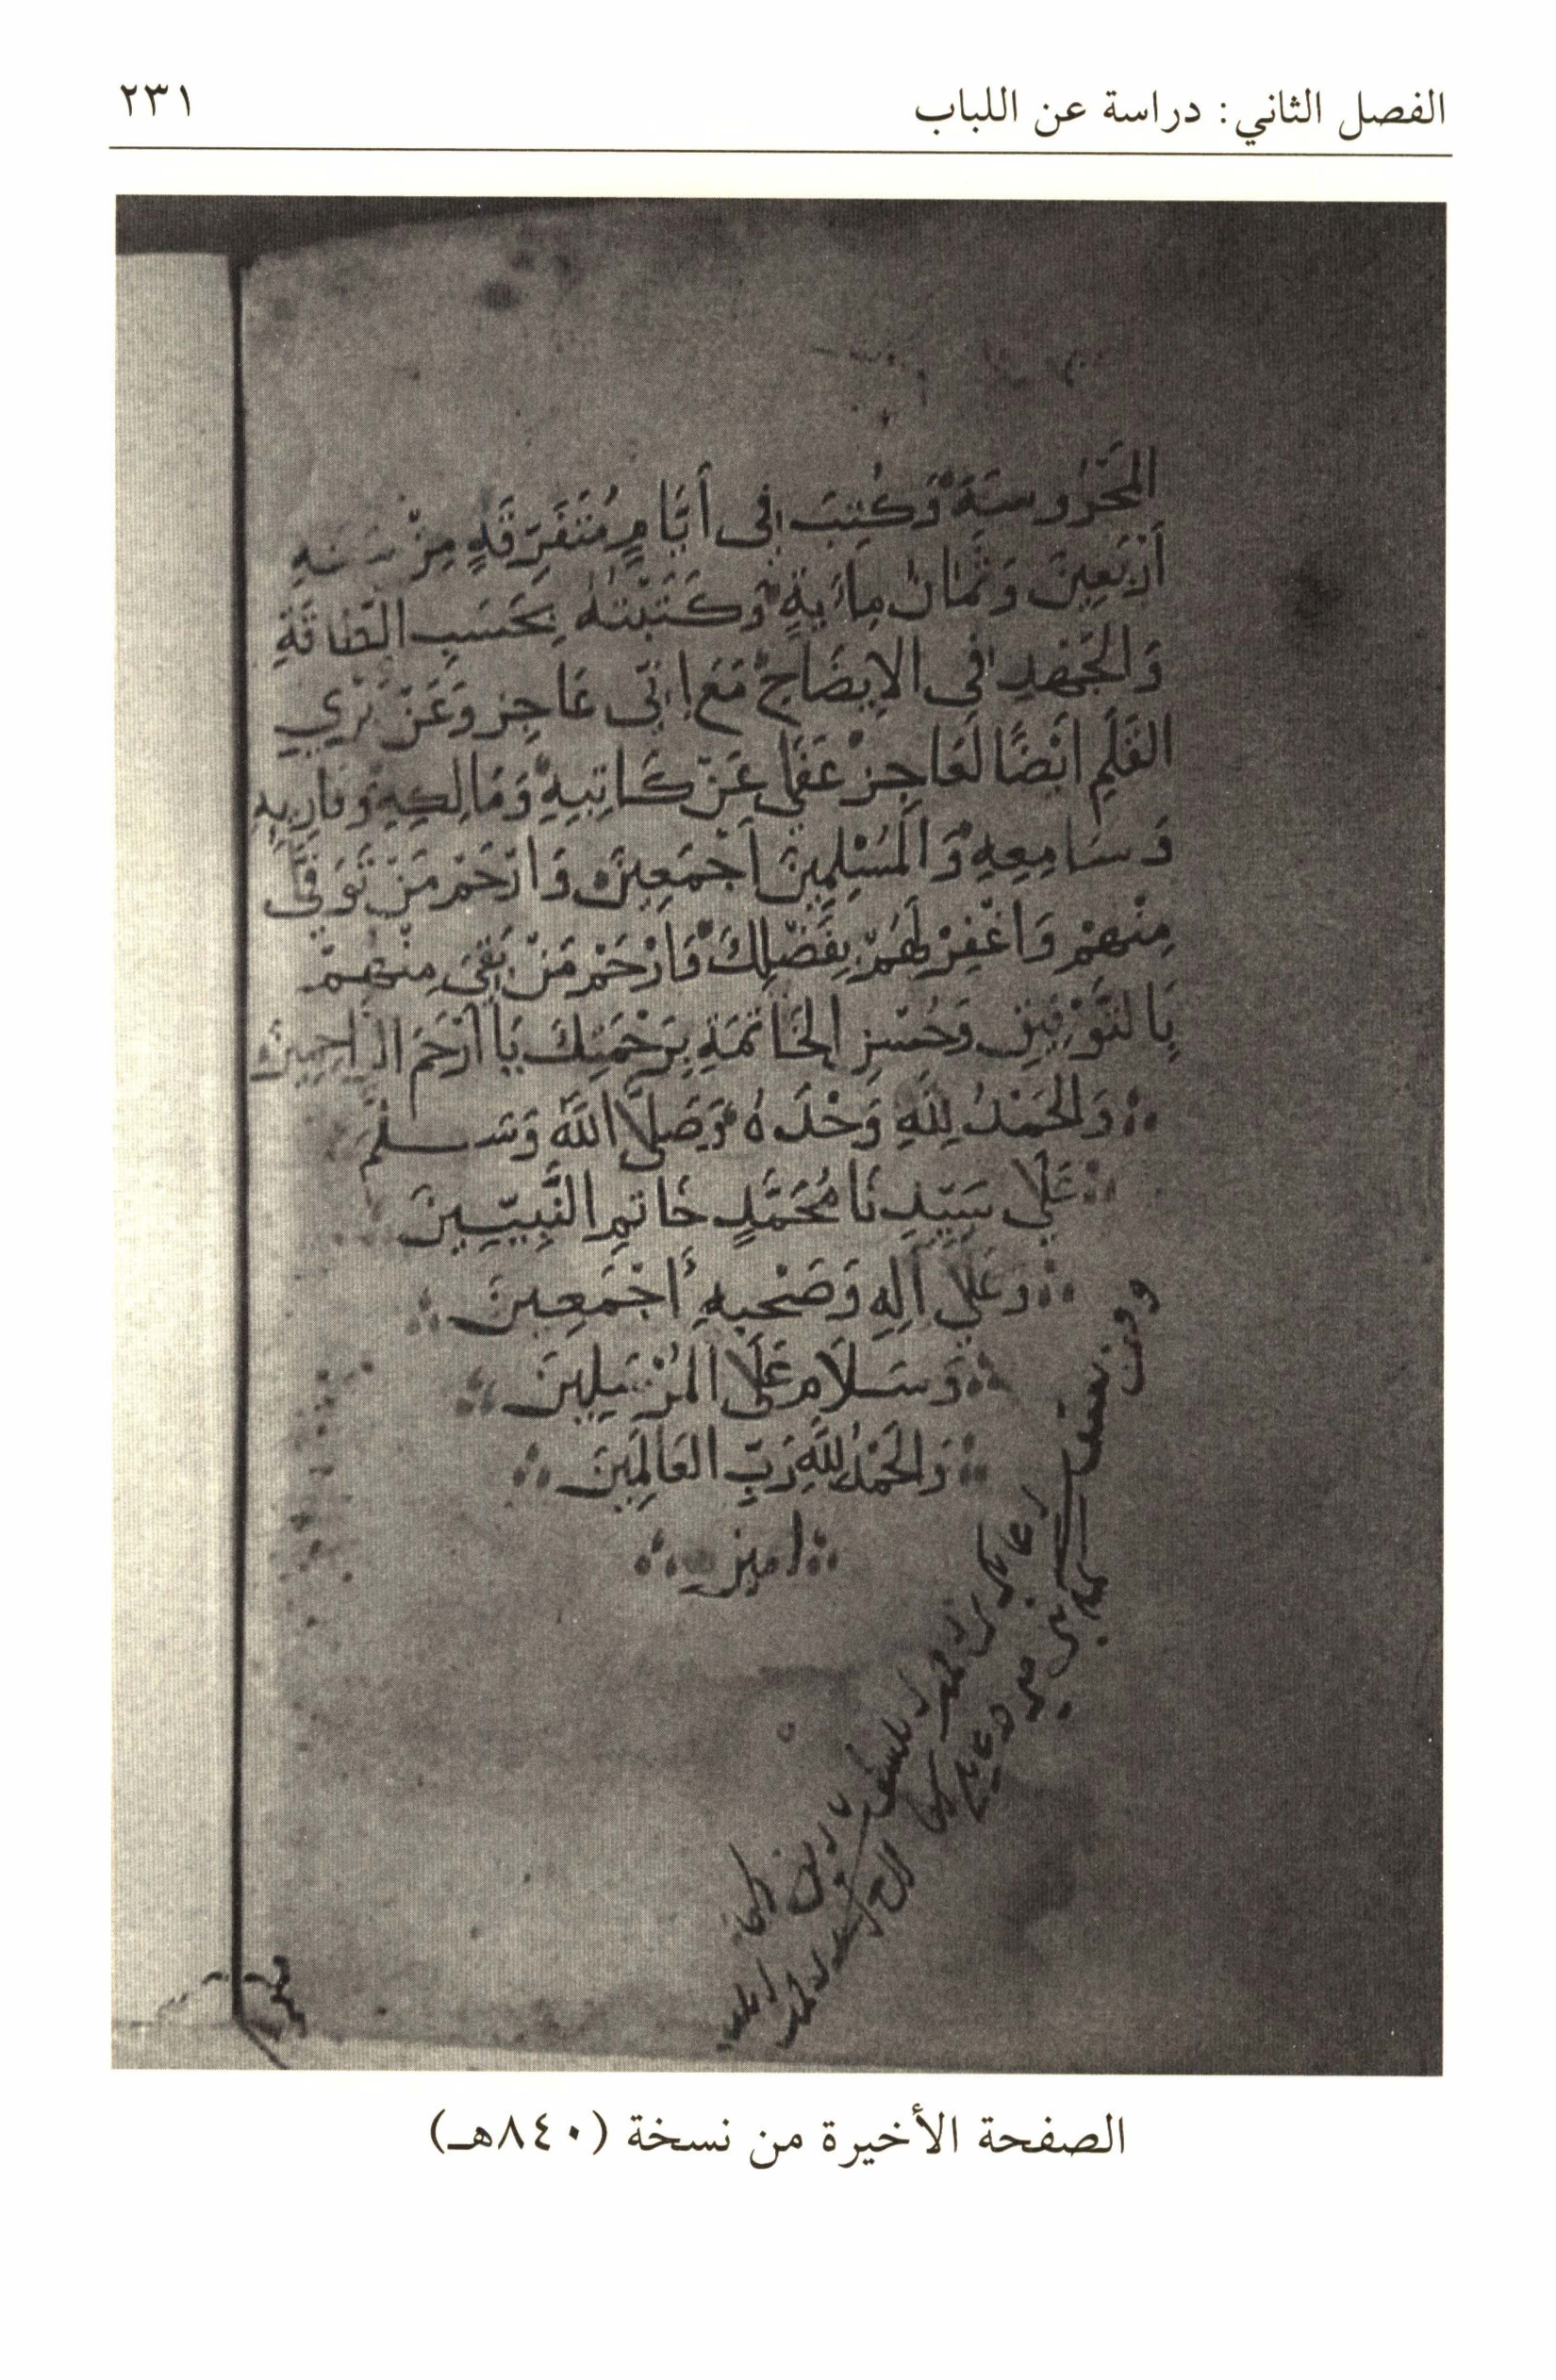 الفصل الثاني: دراسة عن اللباب ٢٣١
المَحْرُوسَة وَكُتِبَ فِى أَيَّامٍ مُتَفَرِّقَةٍ مِنْ سَنَةِ
أَرْبَعِينَ وَثَمَانِ مِايَةٍ وَكَتَبْتُهُ بِحَسَبِ الطَّاقَةِ
وَالجُهْدِ فِى الإِيضَاحِ مَعَ إِنِّى عَاجِز وَعَنْ
القَلَمِ أَيْضًا لَعَاجِز عَفَى عَنْ كَاتِبِهِ وَمَالِكِهِ وَقَارِيهِ
وَسَامِعِهِ وَالمُسْلِمِينَ أَجْمَعِينَ وَارْحَمْ مَنْ تَوَفَّى
مِنْهُمْ وَاغْفِرْ لَهُمْ بِفَضْلِكَ وَارْحَمْ مَنْ بَقِىَ مِنْهُمْ
بِالتَّوْفِيقِ وَحُسْنِ الخَاتِمَةِ بِرَحْمَتِكَ يَا أَرْحَمَ الرَّاحِمِينَ
وَالحَمْدُ لِلَّهِ وَحْدَهُ وَصَلَّى اللهُ وَسَلَّمَ
عَلَى سَيِّدِنَا مُحَمَّدٍ خَاتِمِ النَّبِيِّينَ
وَعَلَى آلِهِ وَصَحْبِهِ أَجْمَعِينَ
وَسَلَام عَلَى المُرْسَلِينَ
وَالحَمْدُ لِلَّهِ رَبِّ العَالَمِينَ
امين
الصفحة الأخيرة من نسخة (٨٤٠هـ)